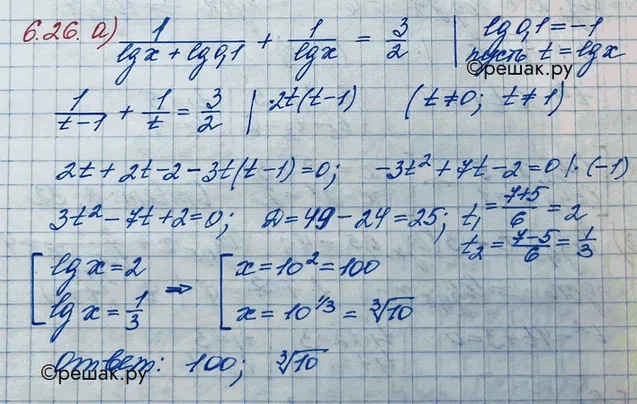 6.26. а) 1/(lg x + lg 0,1) + 1/lg x = 3/2 | lg 0,1 = -1
пусть t = lg x
©решак.ру
1/(t-1) + 1/t = 3/2 | ·2t(t-1) (t≠0; t≠1)
2t + 2t - 2 - 3t(t-1) = 0; -3t² + 7t - 2 = 0 |·(-1)
3t² - 7t + 2 = 0; D = 49 - 24 = 25; t₁ = (7+5)/6 = 2
t₂ = (7-5)/6 = 1/3
[ lg x = 2 ⇒ [ x = 10² = 100
lg x = 1/3 x = 10^(1/3) = ∛10
Ответ: 100; ∛10
©решак.ру